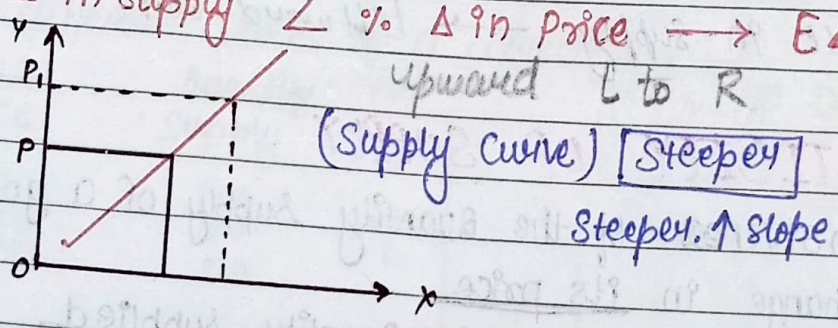 in supply < % Δ in Price → E
Y
P₁
upward L to R
P
(Supply Curve) Steeper
Steeper. ↑ slope
O
X